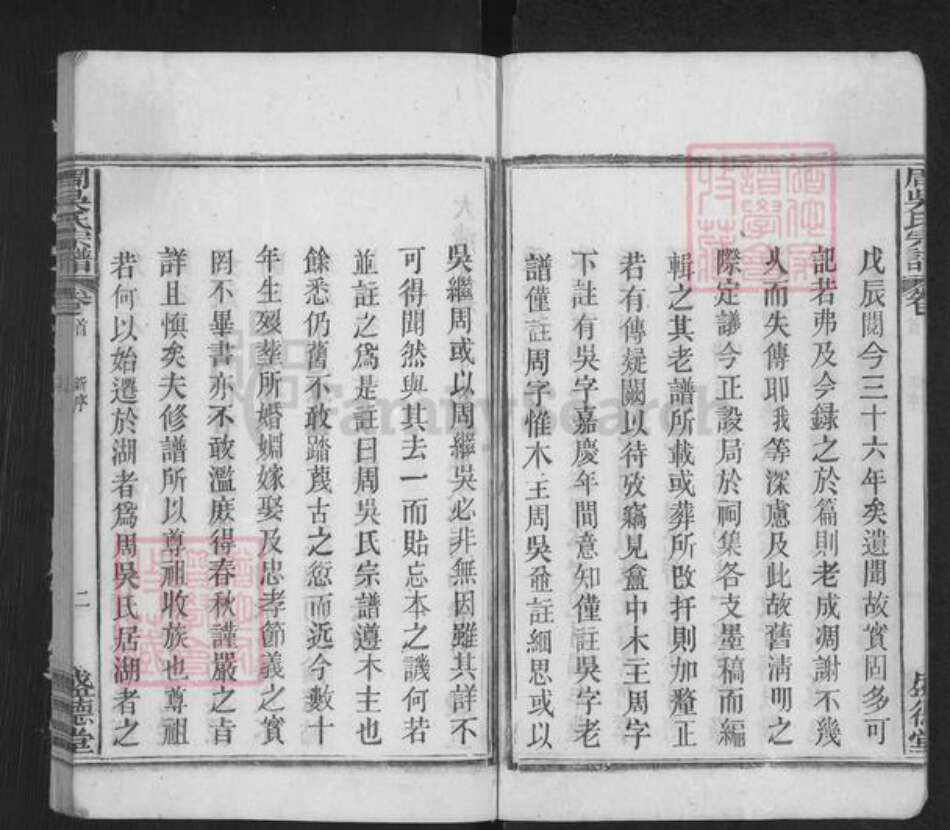 周吳氏宗譜
卷
首
盛德堂
戊辰閱今三十六年矣遺聞故實固多可
記若弗及今録之於篇則老成凋謝不幾
久而失傳耶我等深慮及此故舊清明之
際定議今正設局於祠集各支墨稿而編
輯之其老譜所載或葬所改扞則加釐正
若有傳疑闕以待攷竊見龕中木主周字
下註有吳字嘉慶年間意知僅註吳字老
譜僅註周字惟木主周吳並註細思或以
吳繼周或以周繼吳必非無因雖其詳不
可得聞然與其去一而貽忘本之譏何若
並註之為是註曰周吳氏宗譜遵木主也
餘悉仍舊不敢踏蔑古之愆而近今數十
年生歿葬所婚姻嫁娶及忠孝節義之實
罔不畢書亦不敢濫庶得春秋謹嚴之旨
詳且慎矣夫修譜所以尊祖收族也尊祖
若何以始遷於湖者為周吳氏居湖者之
周吳氏宗譜
卷
首
新序
二
盛德堂
FamilySearch